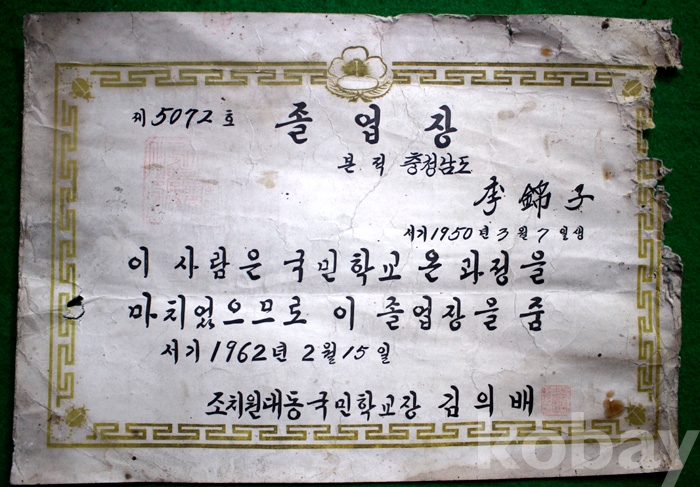 제 5072 호
졸 업 장
본 적 충청남도
李錦子
서기 1950 년 3 월 7 일생
이 사람은 국민학교 온 과정을
마치었으므로 이 졸업장을 줌
서기 1962년 2월 15일
조치원대동국민학교장 김의배
kobay